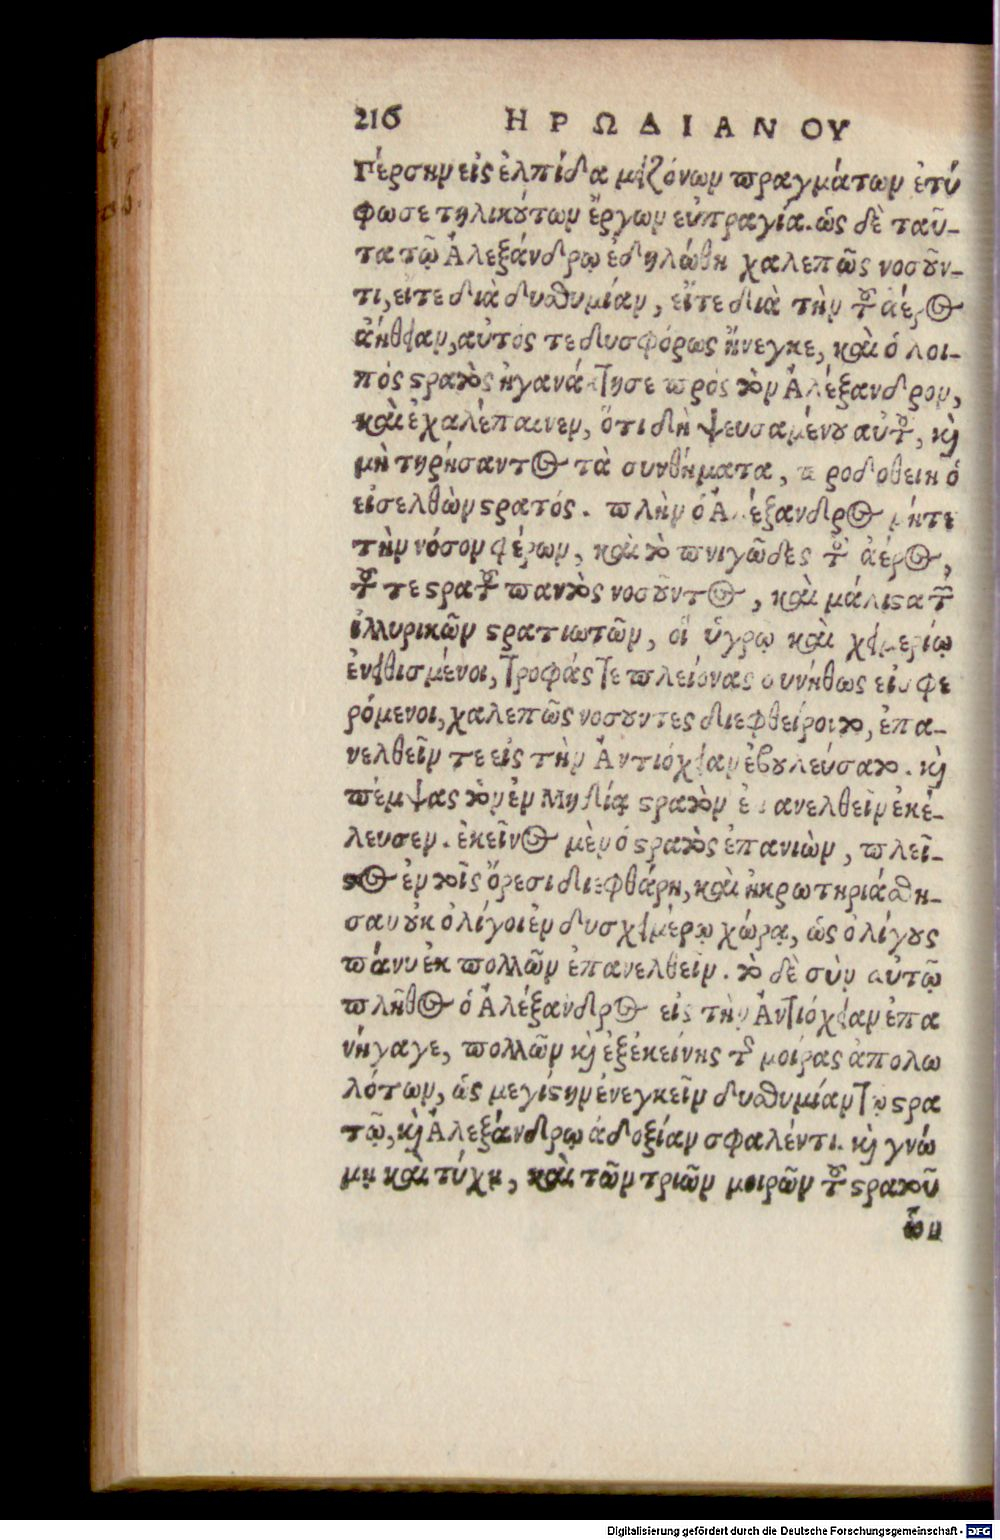 216 ΗΡΩΔΙΑΝΟΥ
Πέρσην εἰς ἐλπίδα μειζόνων πραγμάτων ἐτύ
φωσε τηλικούτων ἔργων εὐπραγία. ὡς δὲ ταῦ-
τα τῷ Ἀλεξάνδρῳ ἐδηλώθη χαλεπῶς νοσοῦν-
τι, εἴτε διὰ δυσθυμίαν, εἴτε διὰ τὴν τοῦ ἀέρος
ἀήθειαν, αὐτός τε δυσφόρως ἤνεγκε, καὶ ὁ λοι-
πός στρατὸς ἠγανάκτησε πρός τὸν Ἀλέξανδρον,
καὶ ἐχαλέπαινεν, ὅτι δὴ ψευσαμένου αὐτοῦ, καὶ
μὴ τηρήσαντος τὰ συνθήματα, προδοθείη ὁ
εἰσελθὼν στρατός. πλὴν ὁ Ἀλέξανδρος μήτε
τὴν νόσον φέρων, καὶ τὸ πνιγῶδες τοῦ ἀέρος,
τοῦ τε στρατοῦ παντὸς νοσοῦντος, καὶ μάλιστα τῶν
ἰλλυρικῶν στρατιωτῶν, οἳ ὑγρῷ καὶ χειμερίῳ
ἐνειθισμένοι, τροφάς τε πλείονας συνήθως εἰσφε
ρόμενοι, χαλεπῶς νοσουντες διεφθείροντο, ἐπα-
νελθεῖν τε εἰς τὴν Ἀντιόχειαν ἐβουλεύσατο. καὶ
πέμψας τὸν ἐν Μηδίᾳ στρατὸν ἐπανελθεῖν ἐκέ-
λευσεν. ἐκεῖνος μὲν ὁ στρατὸς ἐπανιὼν, πλεῖ-
στος ἐν τοῖς ὄρεσι διεφθάρη, καὶ ἠκρωτηριάσθη-
σαν οὐκ ὀλίγοι ἐν δυσχειμέρῳ χώρᾳ, ὡς ὀλίγους
πάνυ ἐκ πολλῶν ἐπανελθεῖν. τὸ δὲ σὺν αὐτῷ
πλῆθος ὁ Ἀλέξανδρος εἰς τὴν Ἀντιόχειαν ἐπα
νήγαγε, πολλῶν καὶ ἐξ ἐκείνης τῆς μοίρας ἀπολω
λότων, ὡς μεγίστην ἐνεγκεῖν δυσθυμίαν τῷ στρα
τῷ, καὶ Ἀλεξάνδρῳ ἀδοξίαν σφαλέντι. καὶ γνώ
μῃ καὶ τύχῃ, καὶ τῶν τριῶν μοιρῶν τοῦ στρατοῦ
ὧν
Digitalisierung gefördert durch die Deutsche Forschungsgemeinschaft - DFG